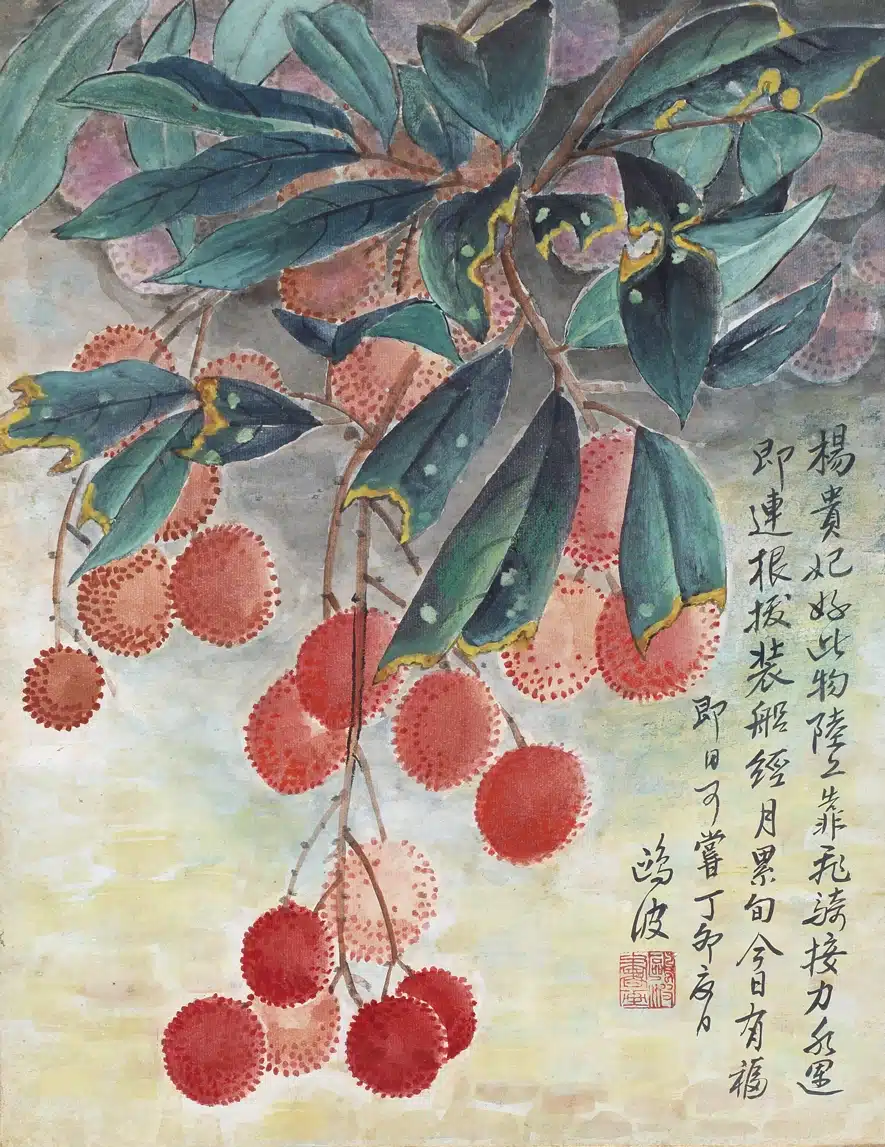 楊貴妃好此物陸上靠飛騎接力水運
即連根拔裝船經月累旬今日有福
即日可嘗丁卯夏日
鷗波
鷗波